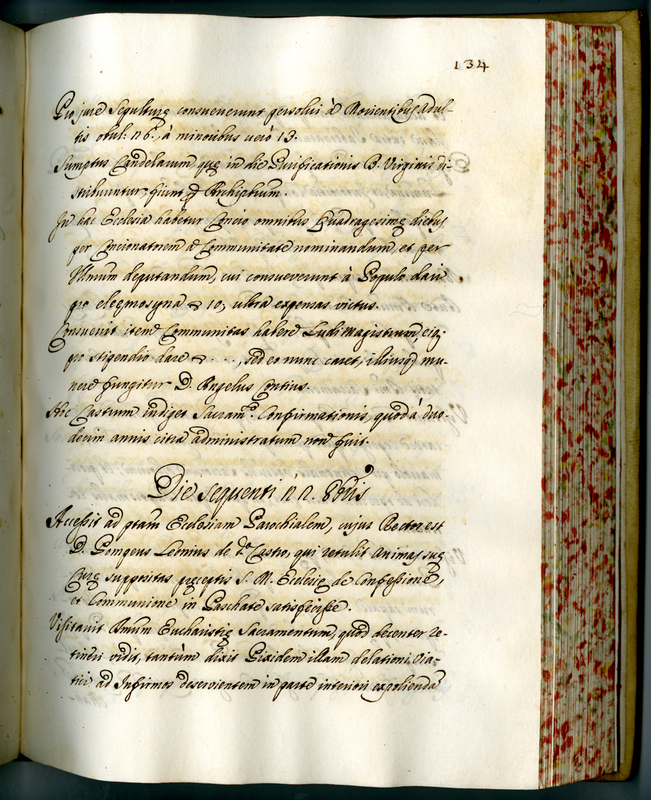 134
Pro jure Sepulturę consueverunt persolvi à Morientibus Adul-
tis obul: n 6. à minoribus verò 13.
Sumptus Candelarum quę in die Purificationis B. Virginis di-
stribuuntur, fiunt p Archiptrum.
In hac Ecclesia habetur Concio omnibus Quadragesimę diebus
per Concionatorem à Communitate nominandum, et per
Illmum deputandum, cui consueverunt à Populo dari
pro eleęmosyna 10, ultra expensas victus.
Consuevit item Communitas habere Ludi Magistrum, eiq;
pro stipendio dare . . ., sed eo nunc caret, illiusq; mu-
nere fungitur D. Angelus Contius.
Hoc Castrum indiget Sacram.to Confirmationis, quod à duo-
decim annis citra administratum non fuit.
Die sequenti n n. 8bris
Accessit ad ptam Ecclesiam Parochialem, cujus Rector est
D. Pompeus Leonius de d.o Castro, qui retulit animas suę
Curę suppositas pręceptis S. M. Ecclesię de Confessione,
et Communione in Paschate satisfecisse.
Visitavit Smum Eucharistię Sacramentum, quod decenter re-
tineri vidit, tantùm dixit Pixidem illam delationi Via-
tici ad Infirmos deservientem in parte interiori expolienda